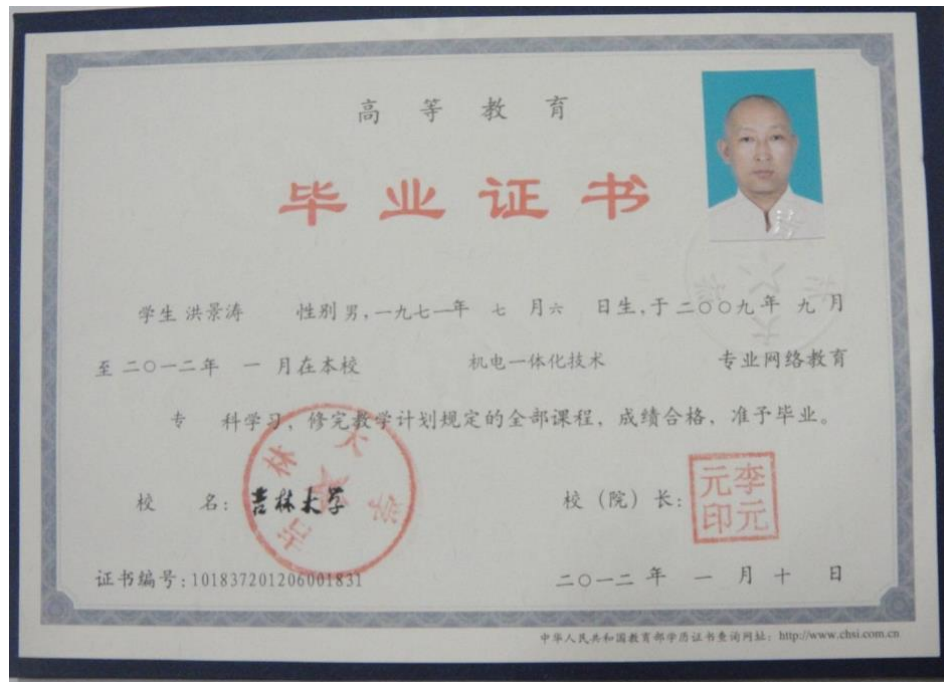 高等教育
毕业证书
学生 洪景涛 性别 男，一九七一年 七 月六 日生，于 二〇〇九年 九 月
至 二〇一二年 一 月在本校 机电一体化技术 专业网络教育
专 科学习，修完教学计划规定的全部课程，成绩合格，准予毕业。
校 名：吉林大学
吉林大学
校（院）长：
李元元印
证书编号：101837201206001831
二〇一二 年 一 月 十 日
中华人民共和国教育部学历证书查询网址：http://www.chsi.com.cn